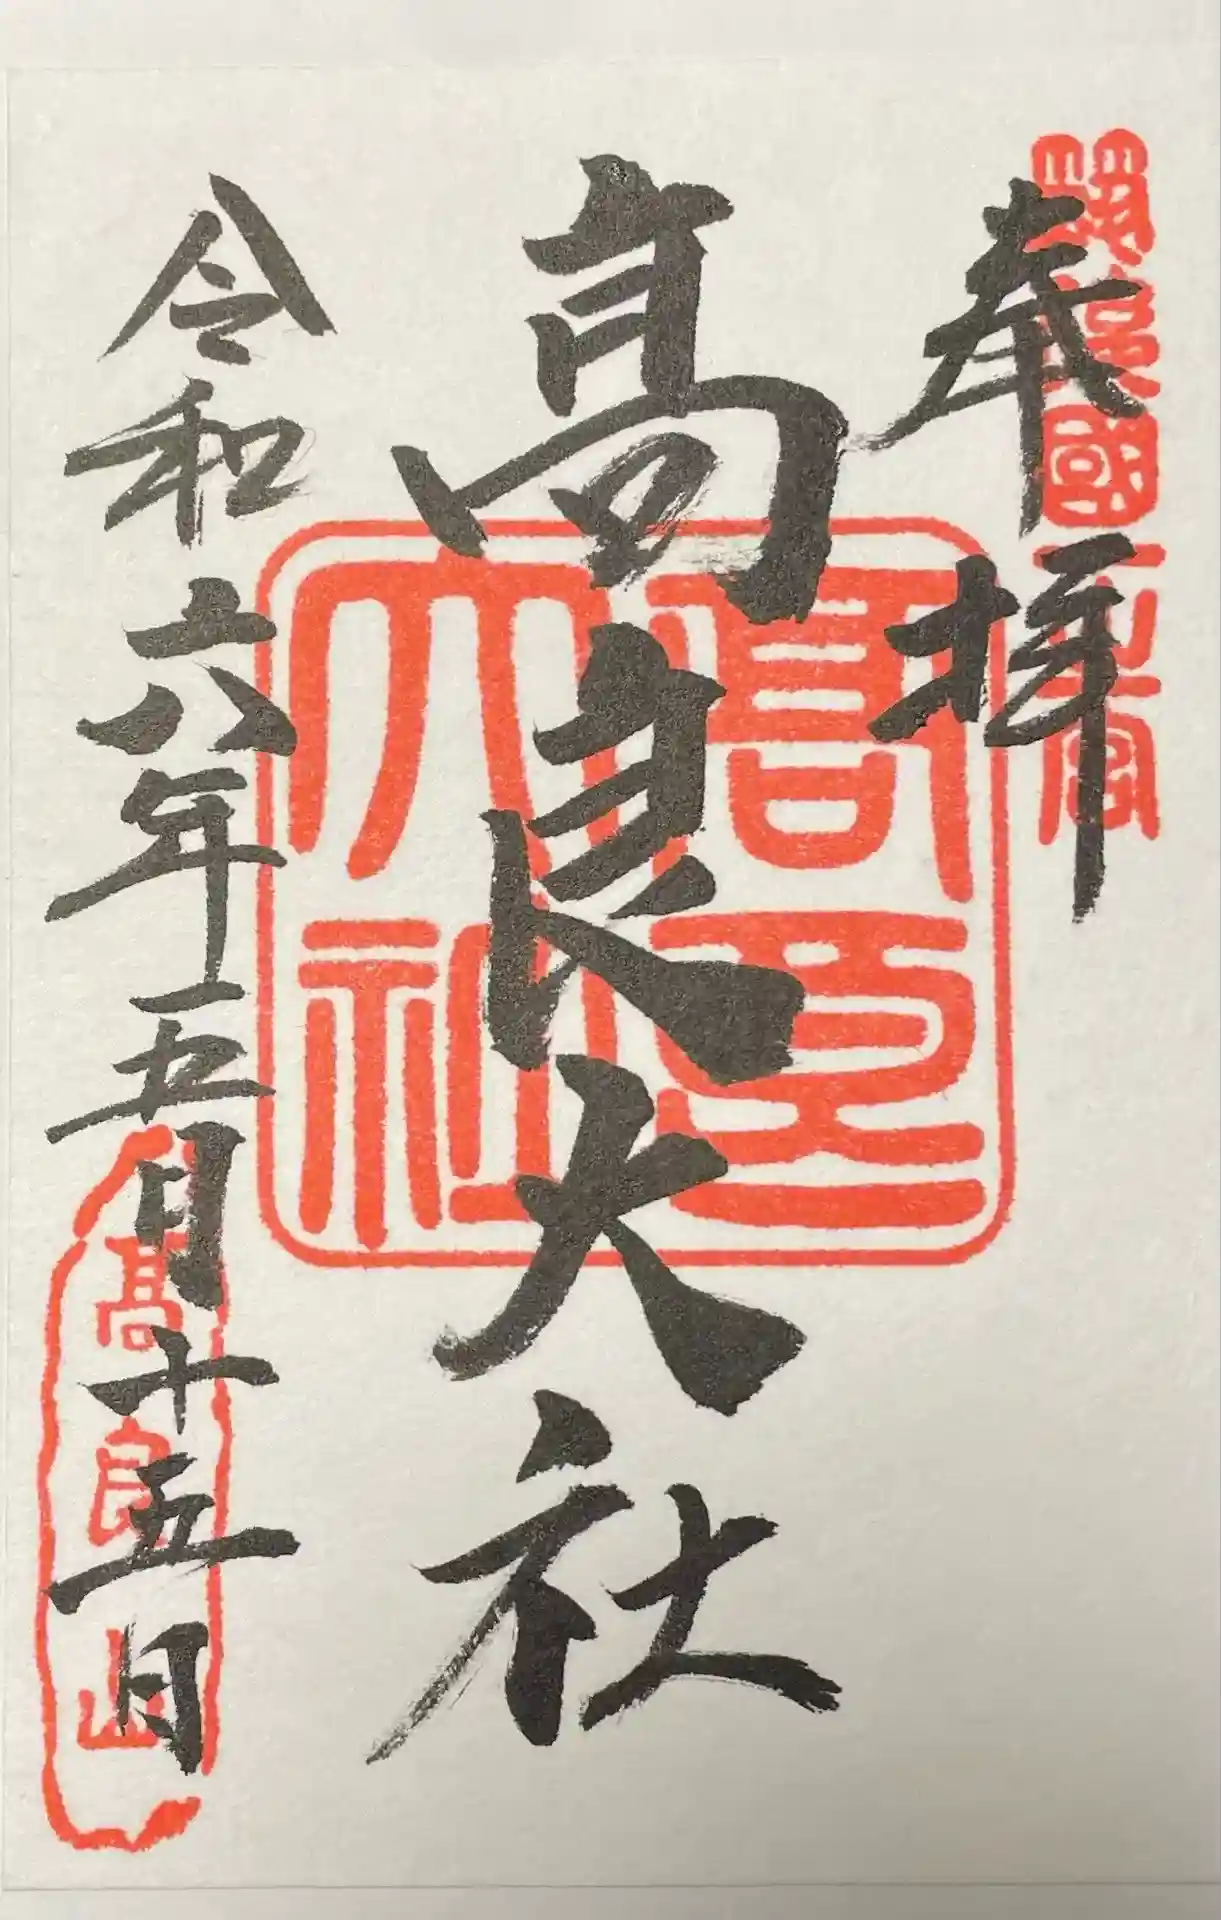 奉拝
筑後國一之宮
高良大社
高良大社
令和六年五月十五日
高良山